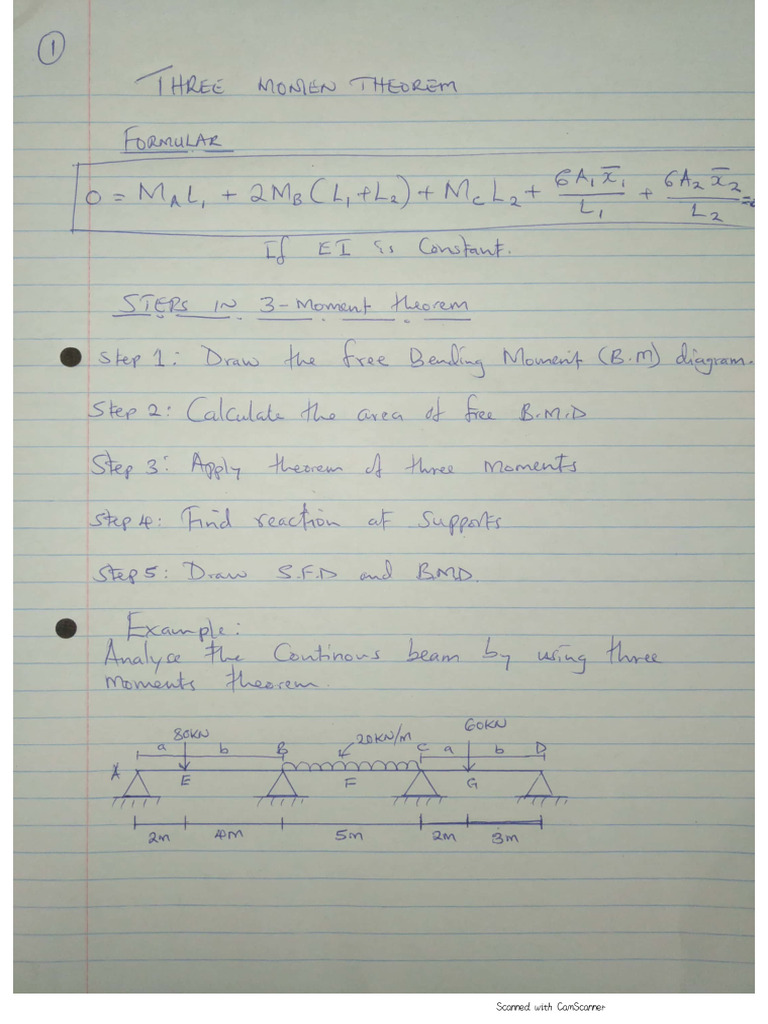 1
THREE MOMEN THEOREM
FORMULAR
0 = M_A L_1 + 2M_B (L_1 + L_2) + M_C L_2 + 6A_1 x̄_1 / L_1 + 6A_2 x̄_2 / L_2 =
If EI is Constant.
STEPS IN 3-Moment theorem
Step 1: Draw the free Bending Moment (B.M) diagram.
Step 2: Calculate the area of free B.M.D
Step 3: Apply theorem of three Moments
Step 4: Find reaction at Supports
Step 5: Draw S.F.D and B.M.D.
Example:
Analyse the Continous beam by using three
moments theorem.
80KN 20KN/M 60KN
A a b B C a b D
E F G
2m 4m 5m 2m 3m
Scanned with CamScanner